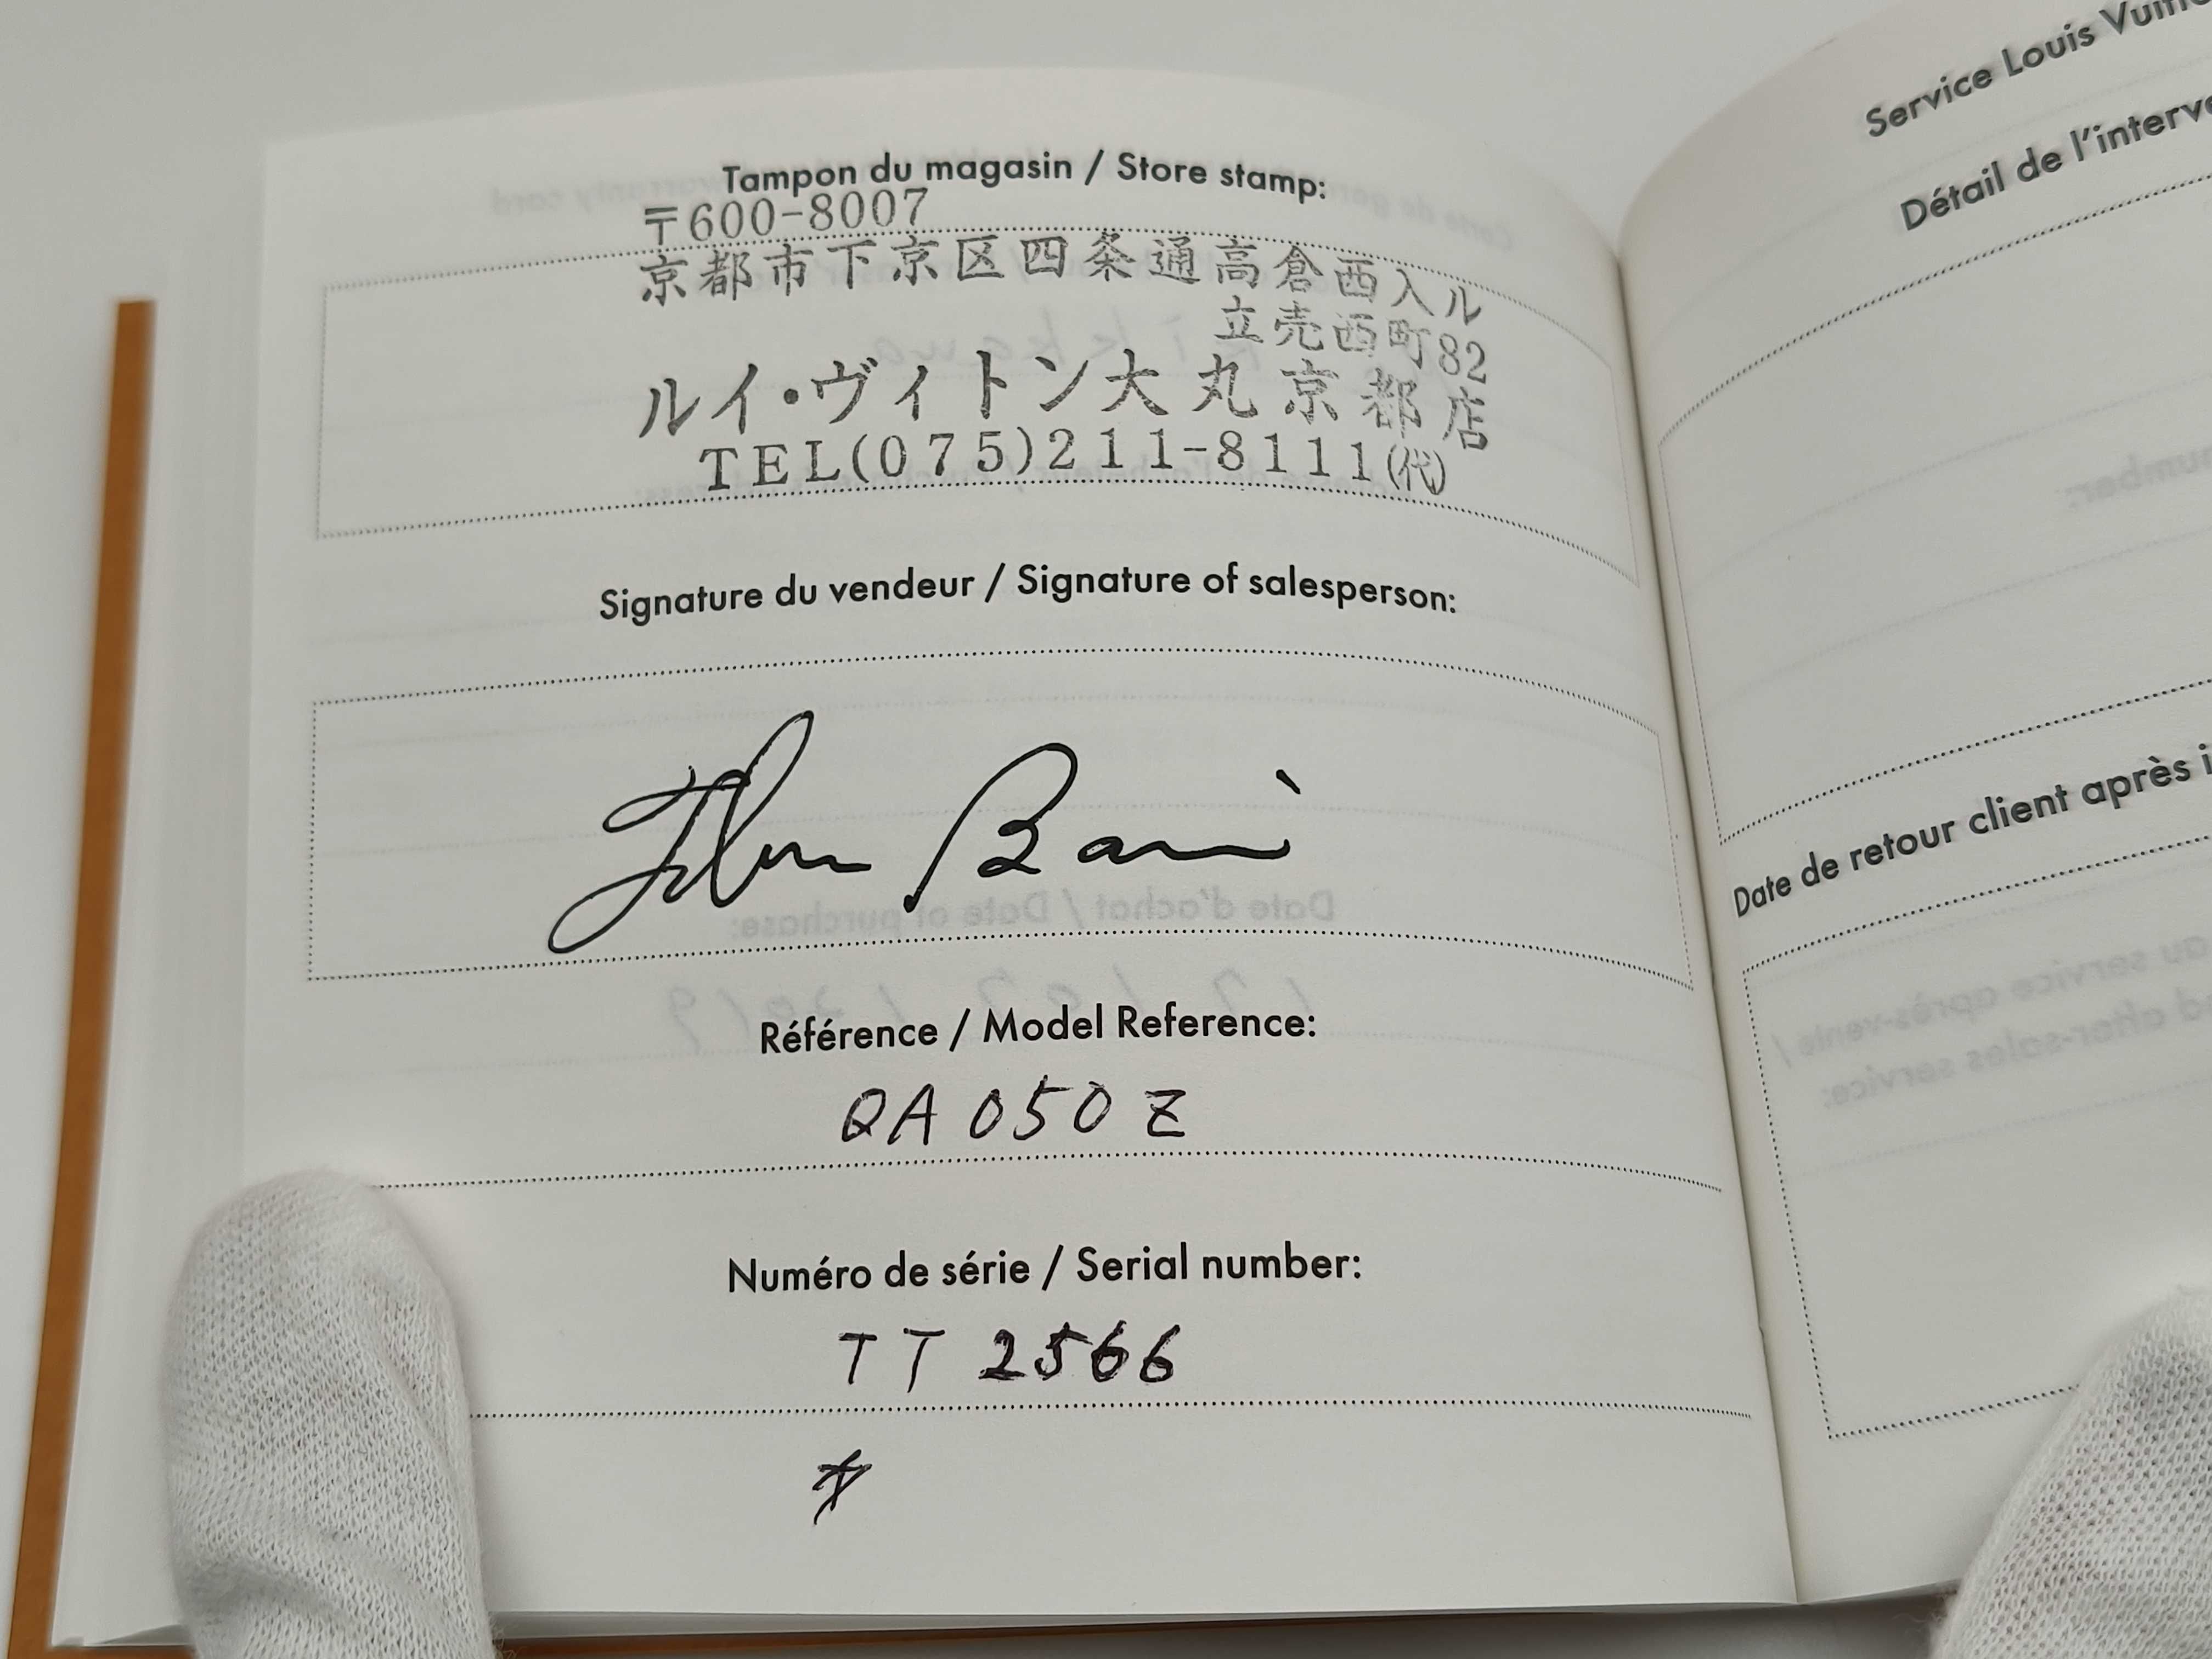 Tampon du magasin / Store stamp:
〒600-8007
京都市下京区四条通高倉西入ル
立売西町82
ルイ・ヴィトン大丸京都店
TEL(075)211-8111(代)
Signature du vendeur / Signature of salesperson:
Référence / Model Reference:
QA 050 Z
Numéro de série / Serial number:
TT 2566
Service Louis
Détail de
Date de retour client après